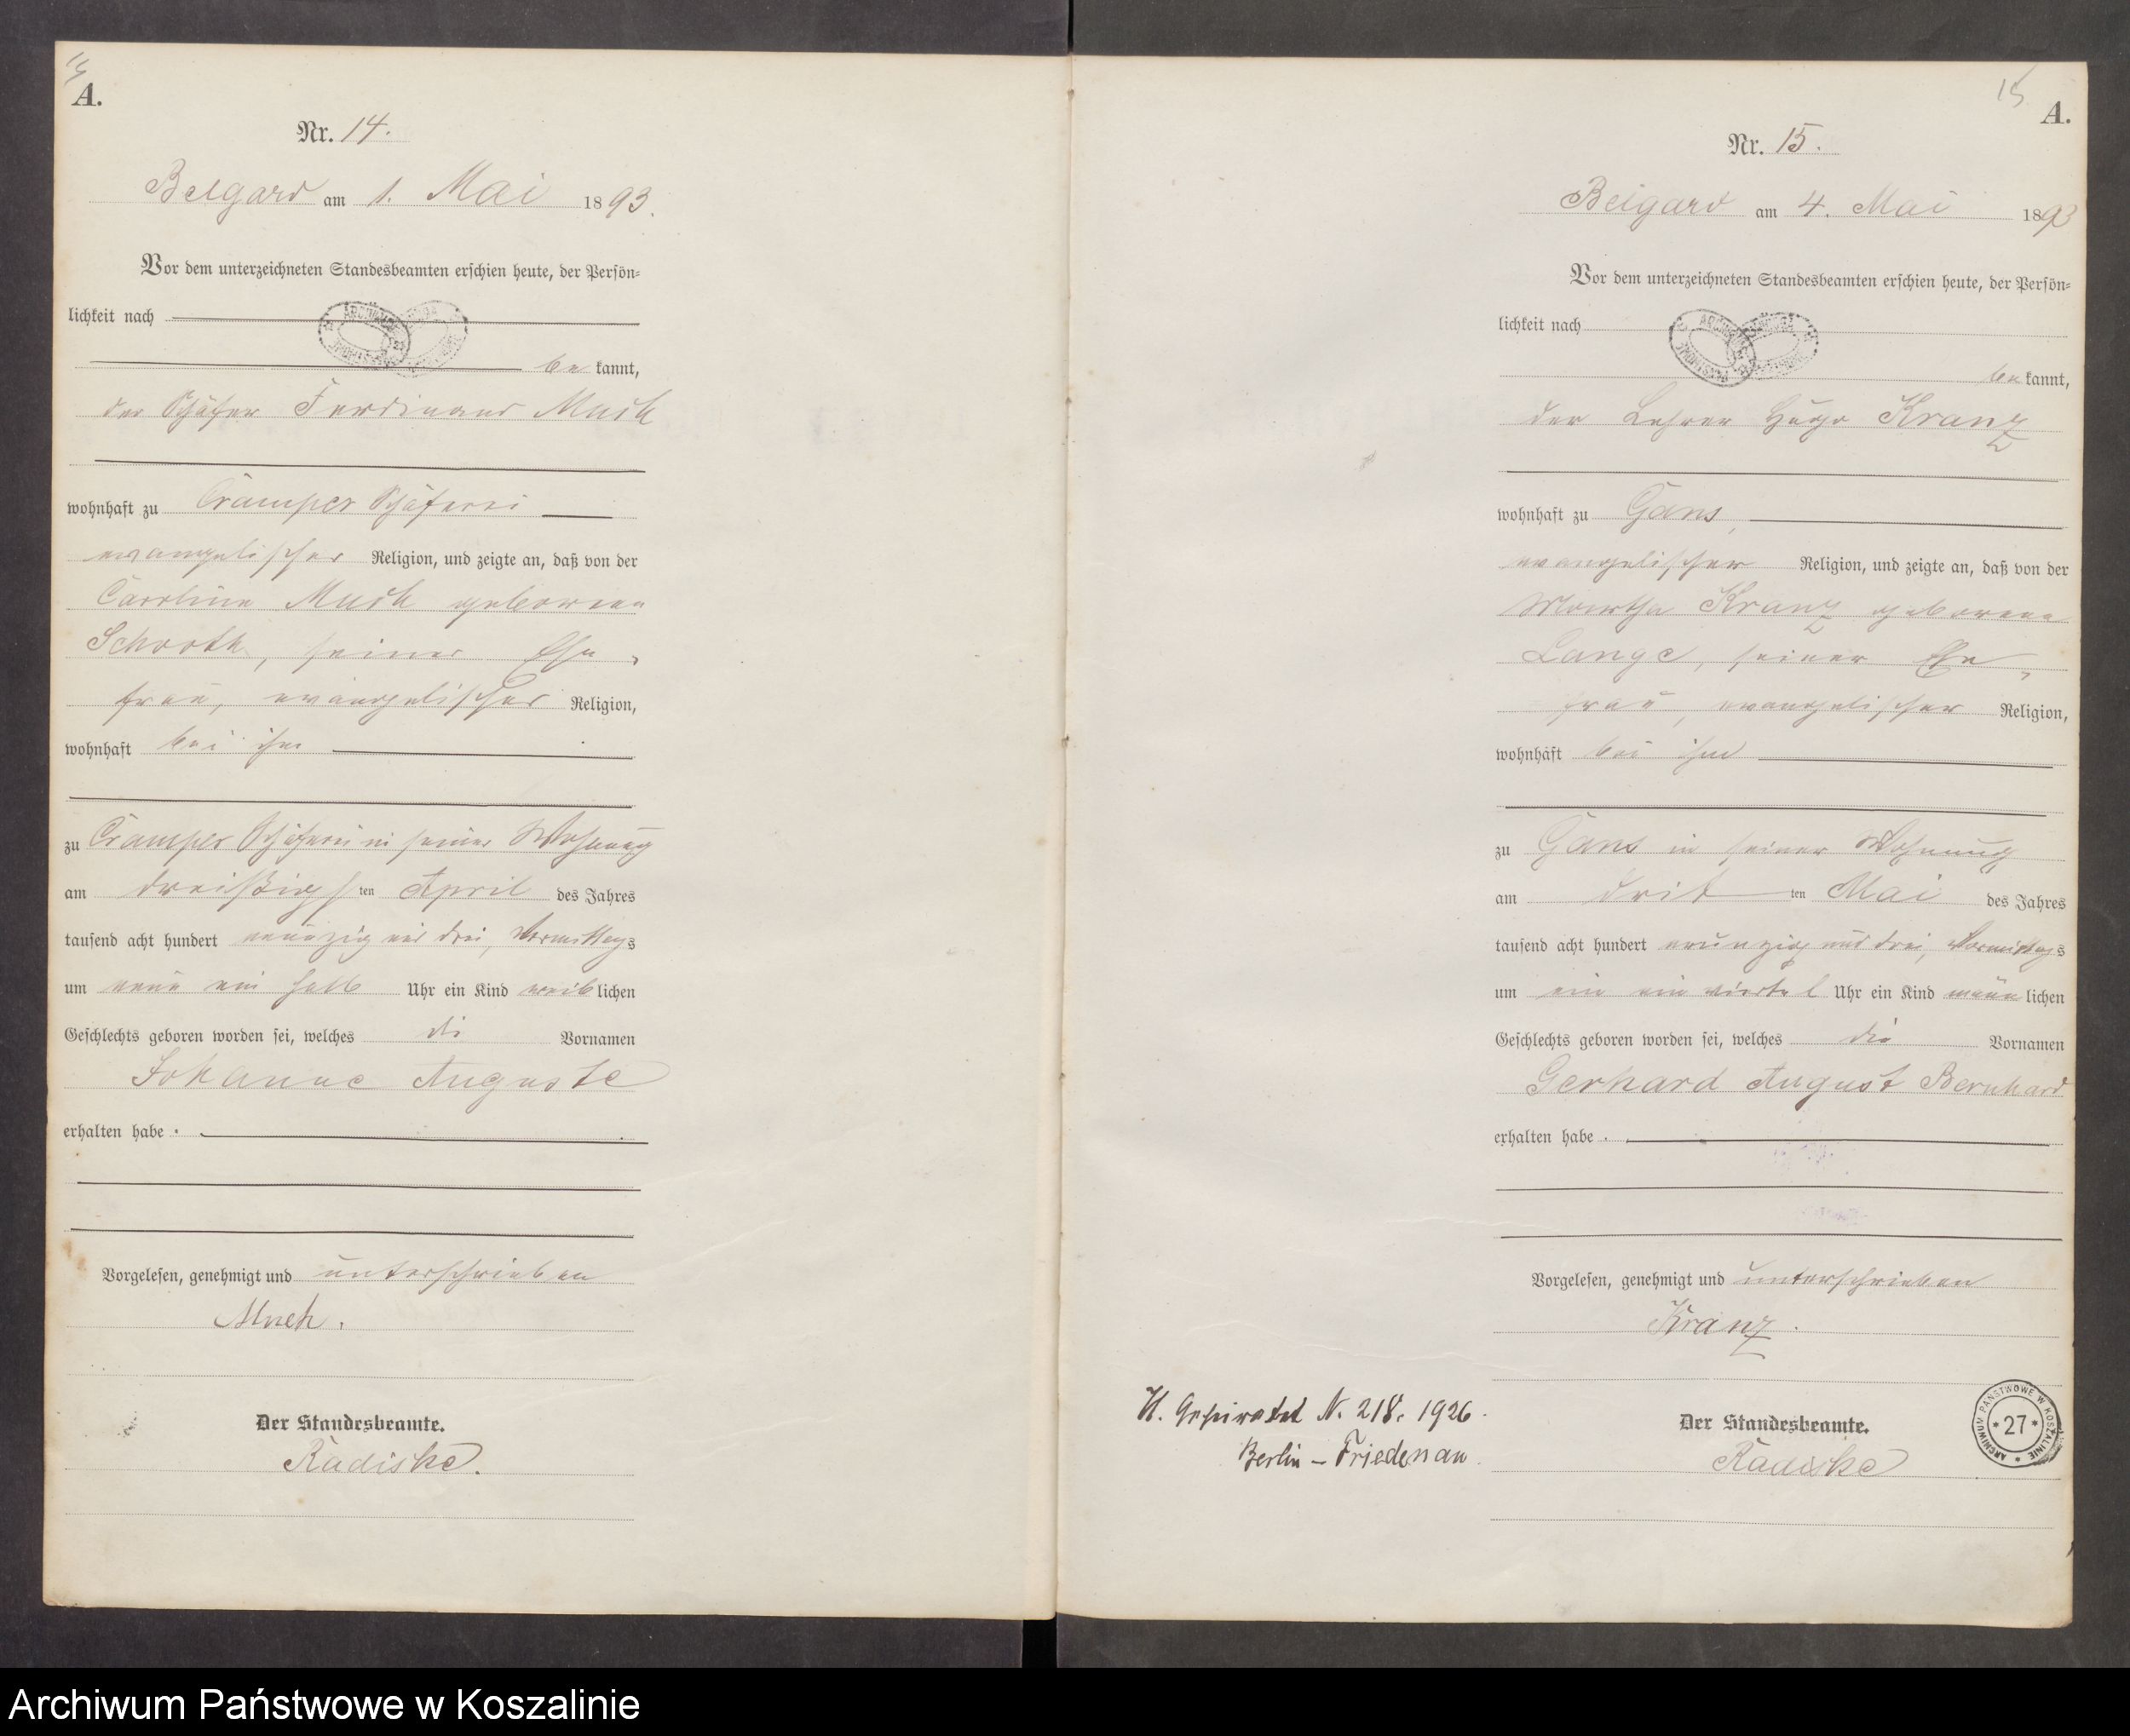 14
A.
Nr. 14.
Belgard am 1. Mai 1893.
Vor dem unterzeichneten Standesbeamten erschien heute, der Persön=
lichkeit nach
be kannt,
der Schäfer Ferdinand Much
wohnhaft zu Cramper Schäferei
evangelischer Religion, und zeigte an, daß von der
Caroline Much geborene
Schroth, seiner Ehe-
frau, evangelischer Religion,
wohnhaft bei ihm
zu Cramper Schäferei in seiner Wohnung
am dreißigsten April des Jahres
tausend acht hundert neunzig und drei, Vormittags
um neun ein halb Uhr ein Kind weiblichen
Geschlechts geboren worden sei, welches die Vornamen
Johanne Auguste
erhalten habe.
Vorgelesen, genehmigt und unterschrieben
Much.
Der Standesbeamte.
Radiske.
15
A.
Nr. 15.
Belgard am 4. Mai 1893
Vor dem unterzeichneten Standesbeamten erschien heute, der Persön=
lichkeit nach
be kannt,
der Lehrer Hugo Kranz
wohnhaft zu Gans,
evangelischer Religion, und zeigte an, daß von der
Martha Kranz geborene
Lange, seiner Ehe-
frau, evangelischer Religion,
wohnhaft bei ihm
zu Gans in seiner Wohnung
am dritten Mai des Jahres
tausend acht hundert neunzig und drei, Vormittags
um ein ein viertel Uhr ein Kind männlichen
Geschlechts geboren worden sei, welches die Vornamen
Gerhard August Bernhard
erhalten habe.
Vorgelesen, genehmigt und unterschrieben
Kranz.
H. Geheiratet N. 218. 1926.
Berlin - Friedenau
Der Standesbeamte.
Radiske
ARCHIWUM PAŃSTWOWE W KOSZALINIE
*27*
Archiwum Państwowe w Koszalinie